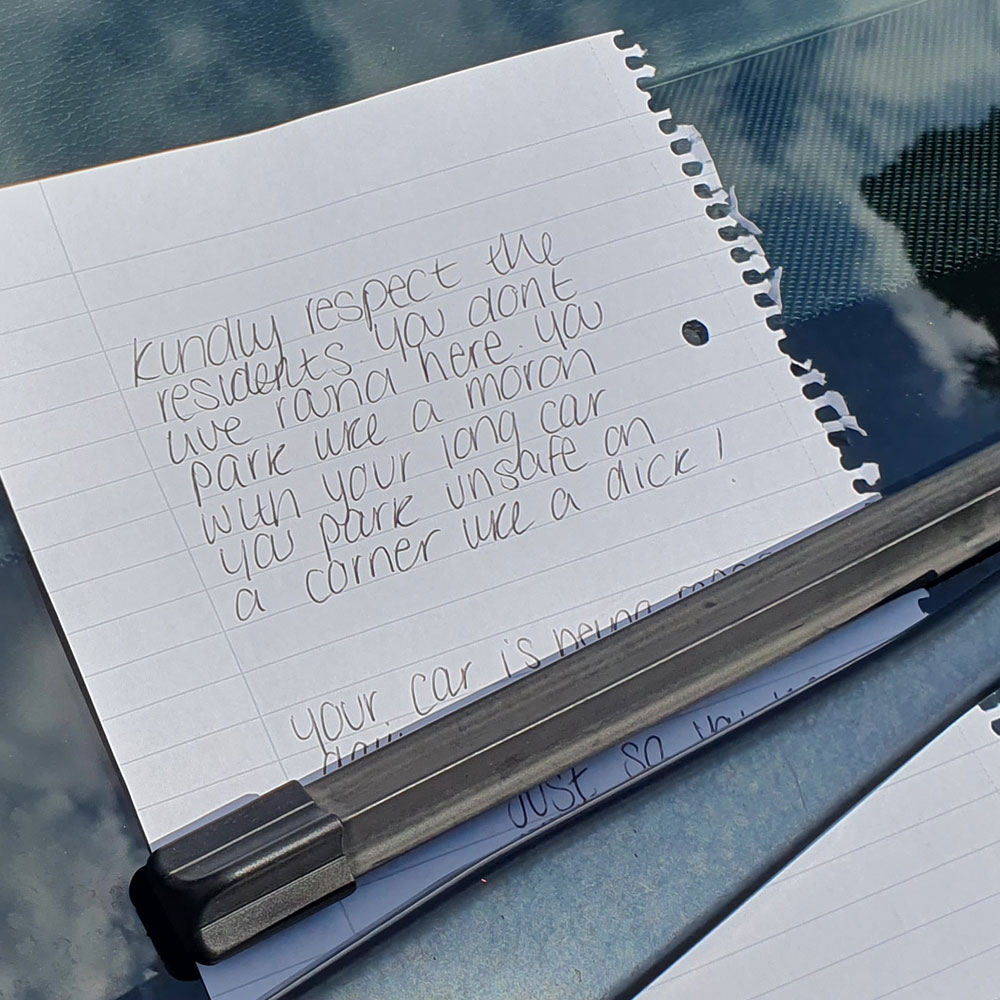 Kindly respect the
residents you dont
live round here. you
park like a moron
with your long car
you park unsafe on
a corner like a dick!
your car is being
Just so you